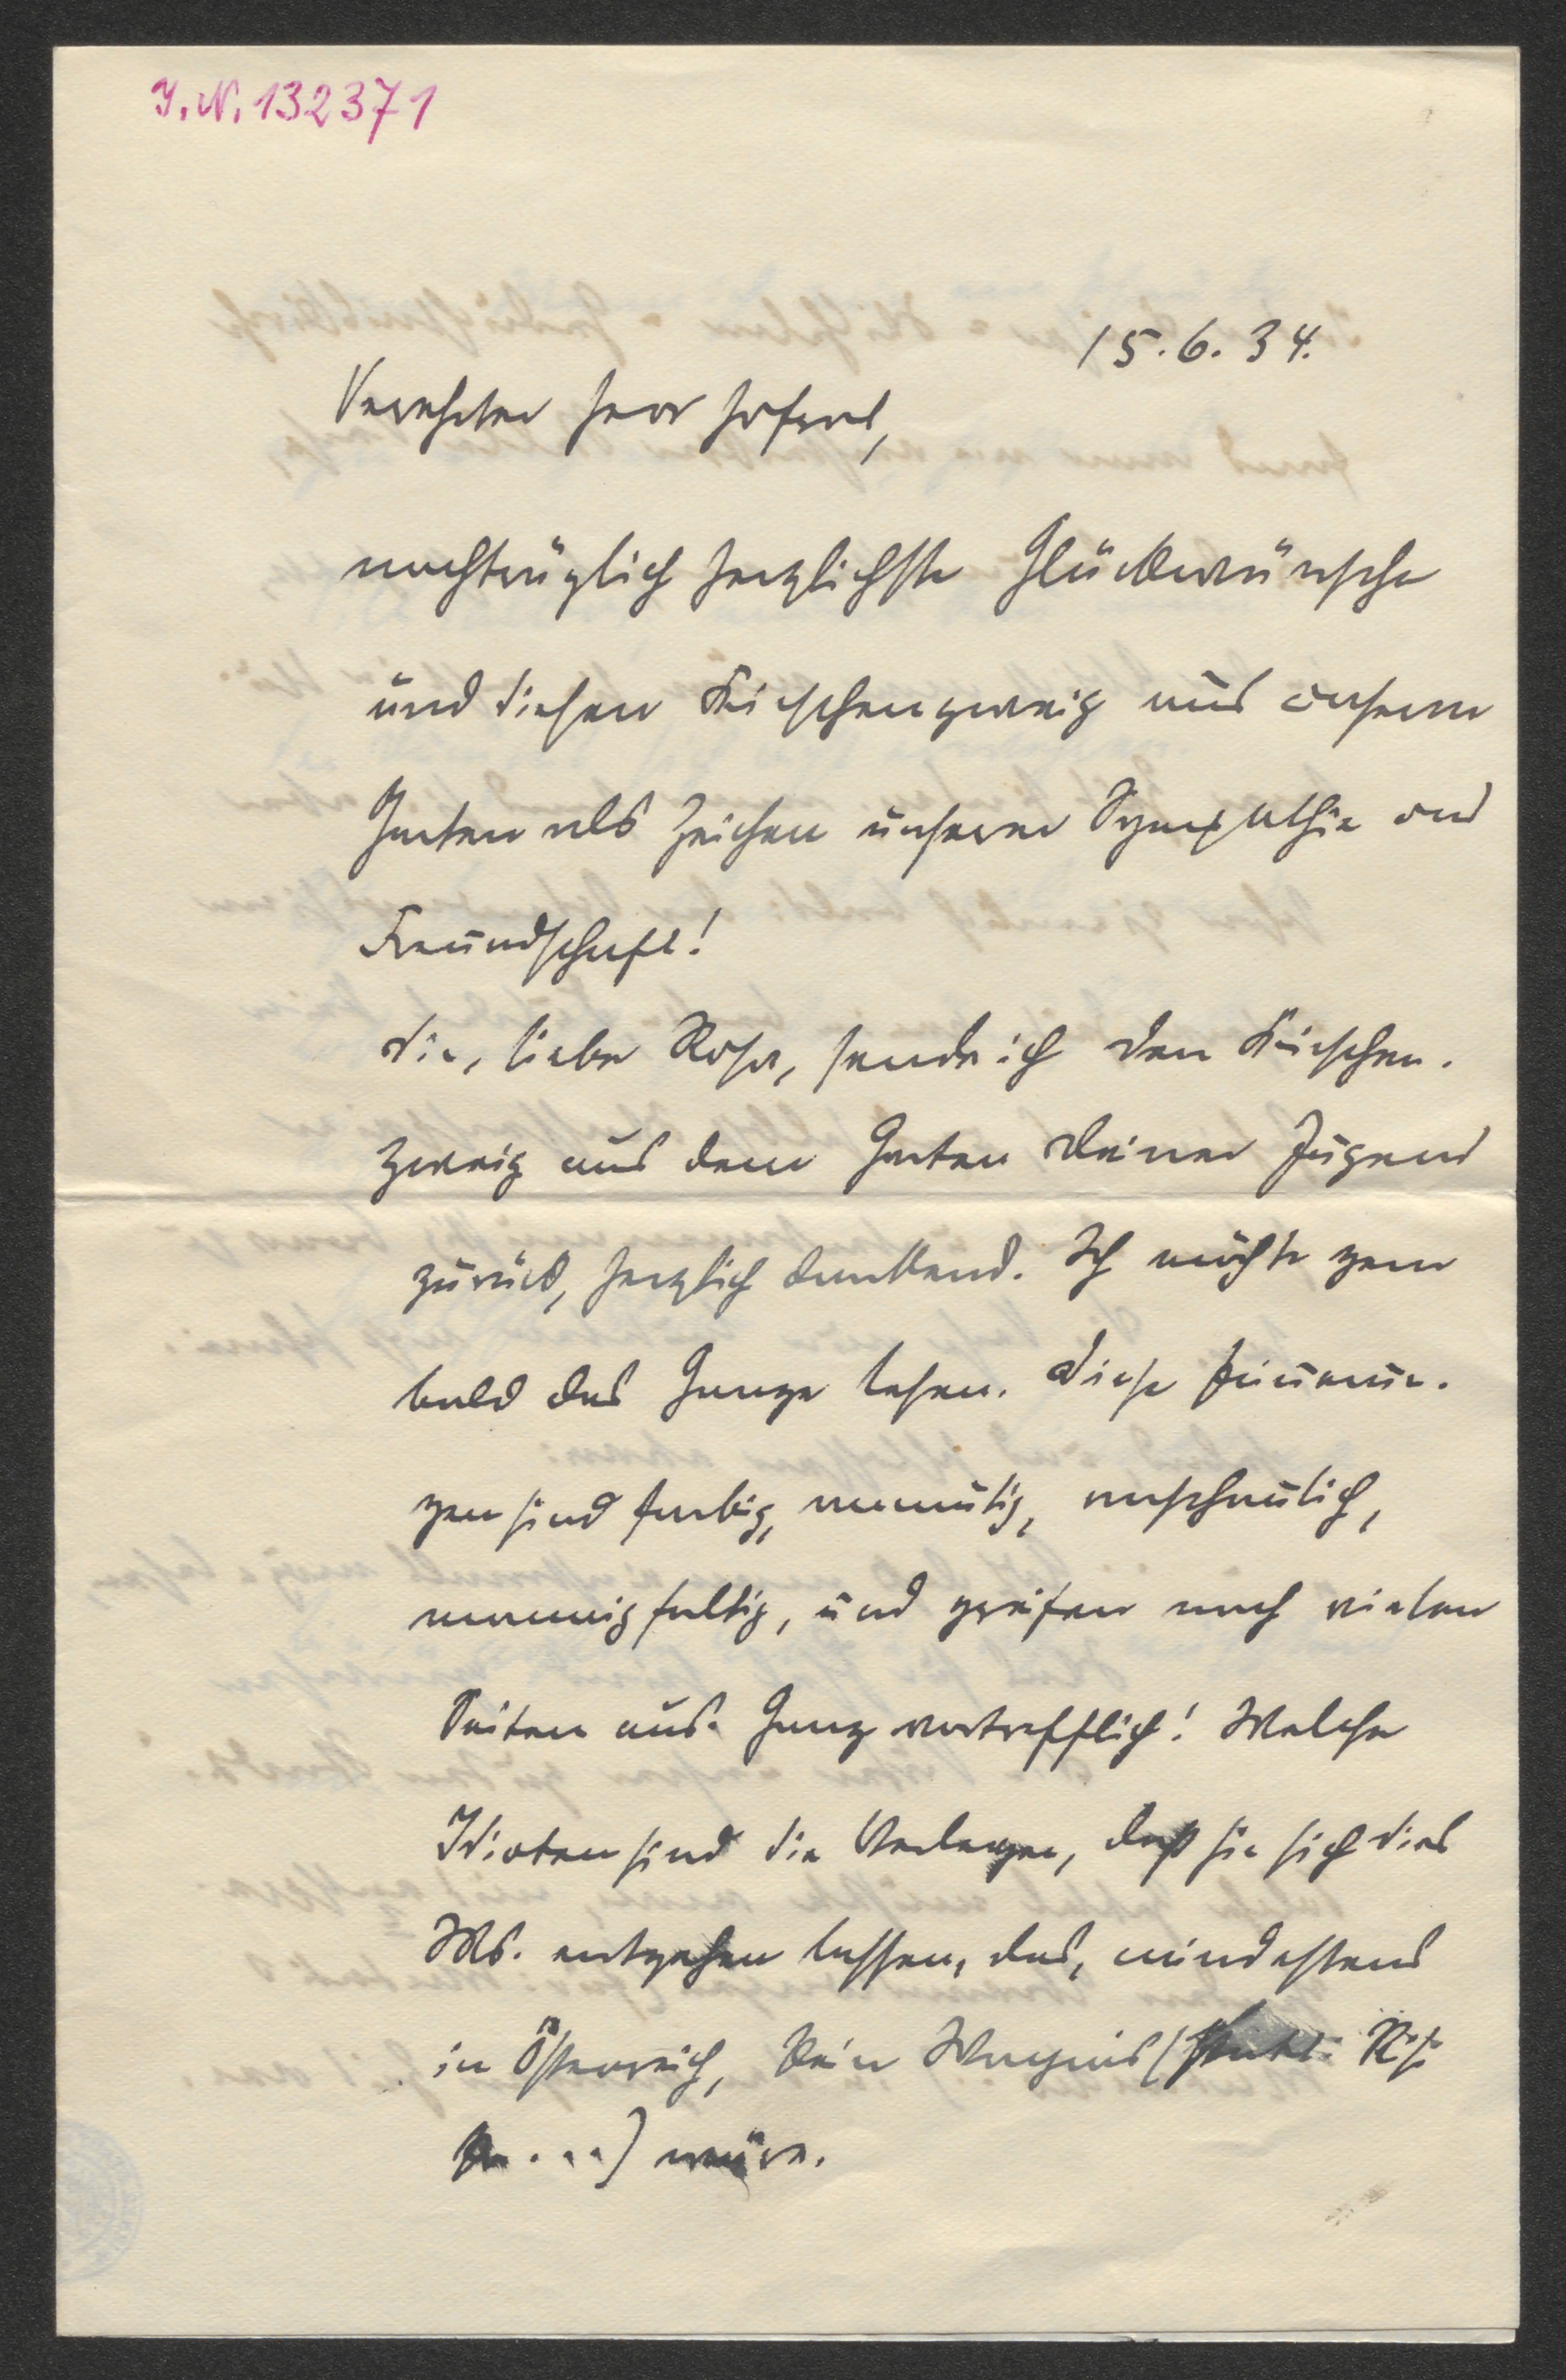 I.N. 132371
15.6.34.
Verehrter Herr Hofrat,
nachträglich herzlichste Glückwünsche
und diesen Kirschenzweig aus unserm
Garten als Zeichen unserer Sympathie und
Freundschaft!
Dir, liebe Rosa, sende ich den Kirschen-
zweig aus dem Garten Deiner Jugend
zurück, herzlich dankend. Ich möchte gern
bald das Ganze lesen. Diese Erinnerun-
gen sind farbig, anmutig, anschaulich,
mannigfaltig, und greifen nach vielen
Seiten aus. Ganz vortrefflich! Welche
Idioten sind die Verleger, daß sie sich dies
Ms. entgehen lassen, das, mindestens
in Österreich, kein Wagnis (
...) wäre.